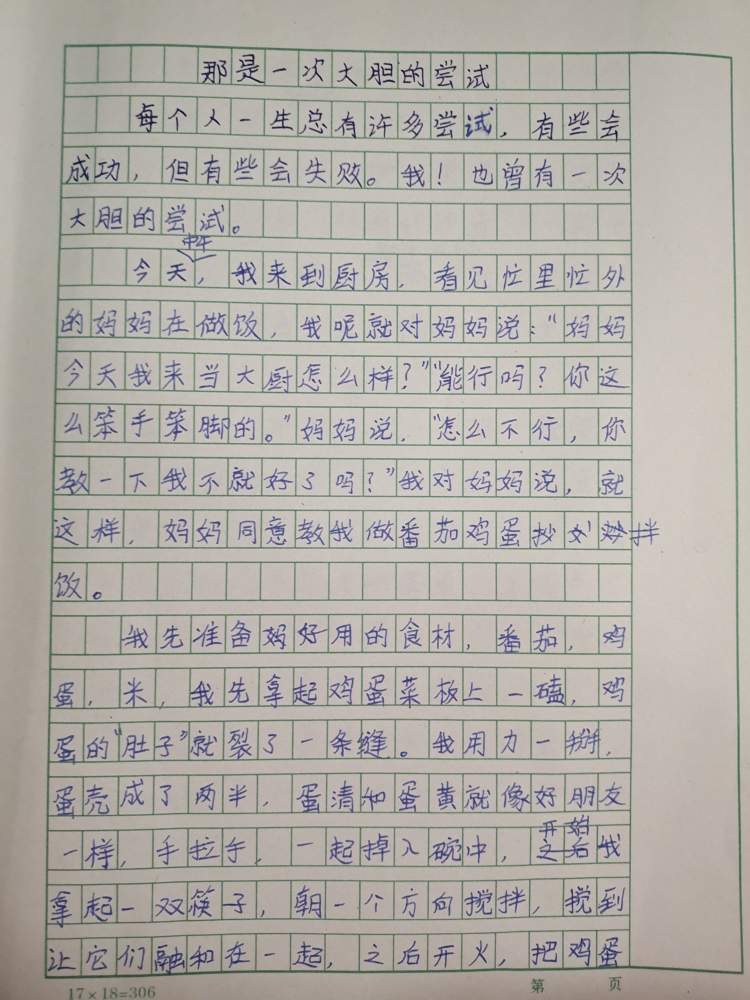 那是一次大胆的尝试
每个人一生总有许多尝试，有些会
成功，但有些会失败。我！也曾有一次
大胆的尝试。
中午
今天，我来到厨房，看见忙里忙外
的妈妈在做饭，我呢就对妈妈说："妈妈
今天我来当大厨怎么样？""能行吗？你这
么笨手笨脚的。"妈妈说，"怎么不行，你
教一下我不就好了吗？"我对妈妈说，就
这样，妈妈同意教我做番茄鸡蛋抄拌
饭。
我先准备妈好用的食材，番茄，鸡
蛋，米，我先拿起鸡蛋菜板上一磕，鸡
蛋的"肚子"就裂了一条缝。我用力一掰，
蛋壳成了两半，蛋清和蛋黄就像好朋友
一样，手拉手，一起掉入碗中，开始我
拿起一双筷子，朝一个方向搅拌，搅到
让它们融和在一起，之后开火，把鸡蛋
17×18=306 第 页